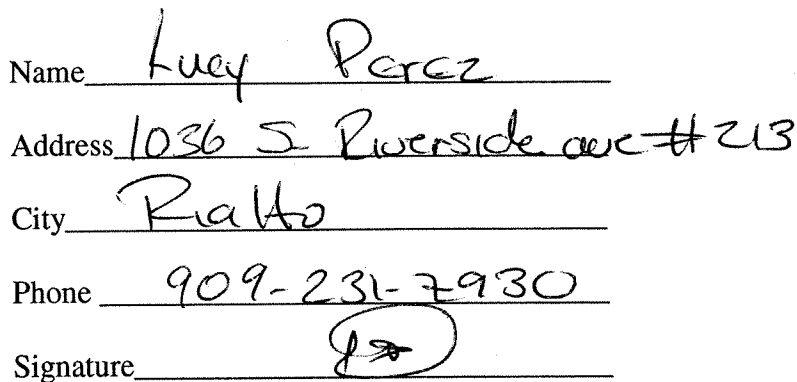 Name Lucy Perez
Address 1036 S Riverside ave #213
City Rialto
Phone 909-231-7930
Signature